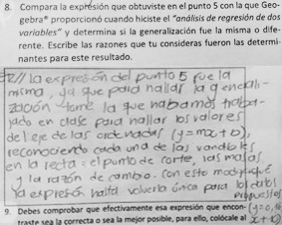 8. Compara la expresión que obtuviste en el punto 5 con la que Geo-
gebra® proporcionó cuando hiciste el "análisis de regresión de dos
variables" y determina si la generalización fue la misma o dife-
rente. Escribe las razones que tu consideras fueron las determi-
nantes para este resultado.
R// la expresión del punto 5 fue la
misma, ya que para hallar la generali-
zación tome la que habíamos traba-
jado en clase para hallar los valores
del eje de las ordenadas (y=mx+b),
reconociendo cada una de las variables
en la recta: el punto de corte, las
y la razón de cambio. Con esto modifiqué
la expresión hasta volverla única para los datos
propuestos
9. Debes comprobar que efectivamente esa expresión que encon-
traste sea la correcta o sea la mejor posible, para ello, colócale al